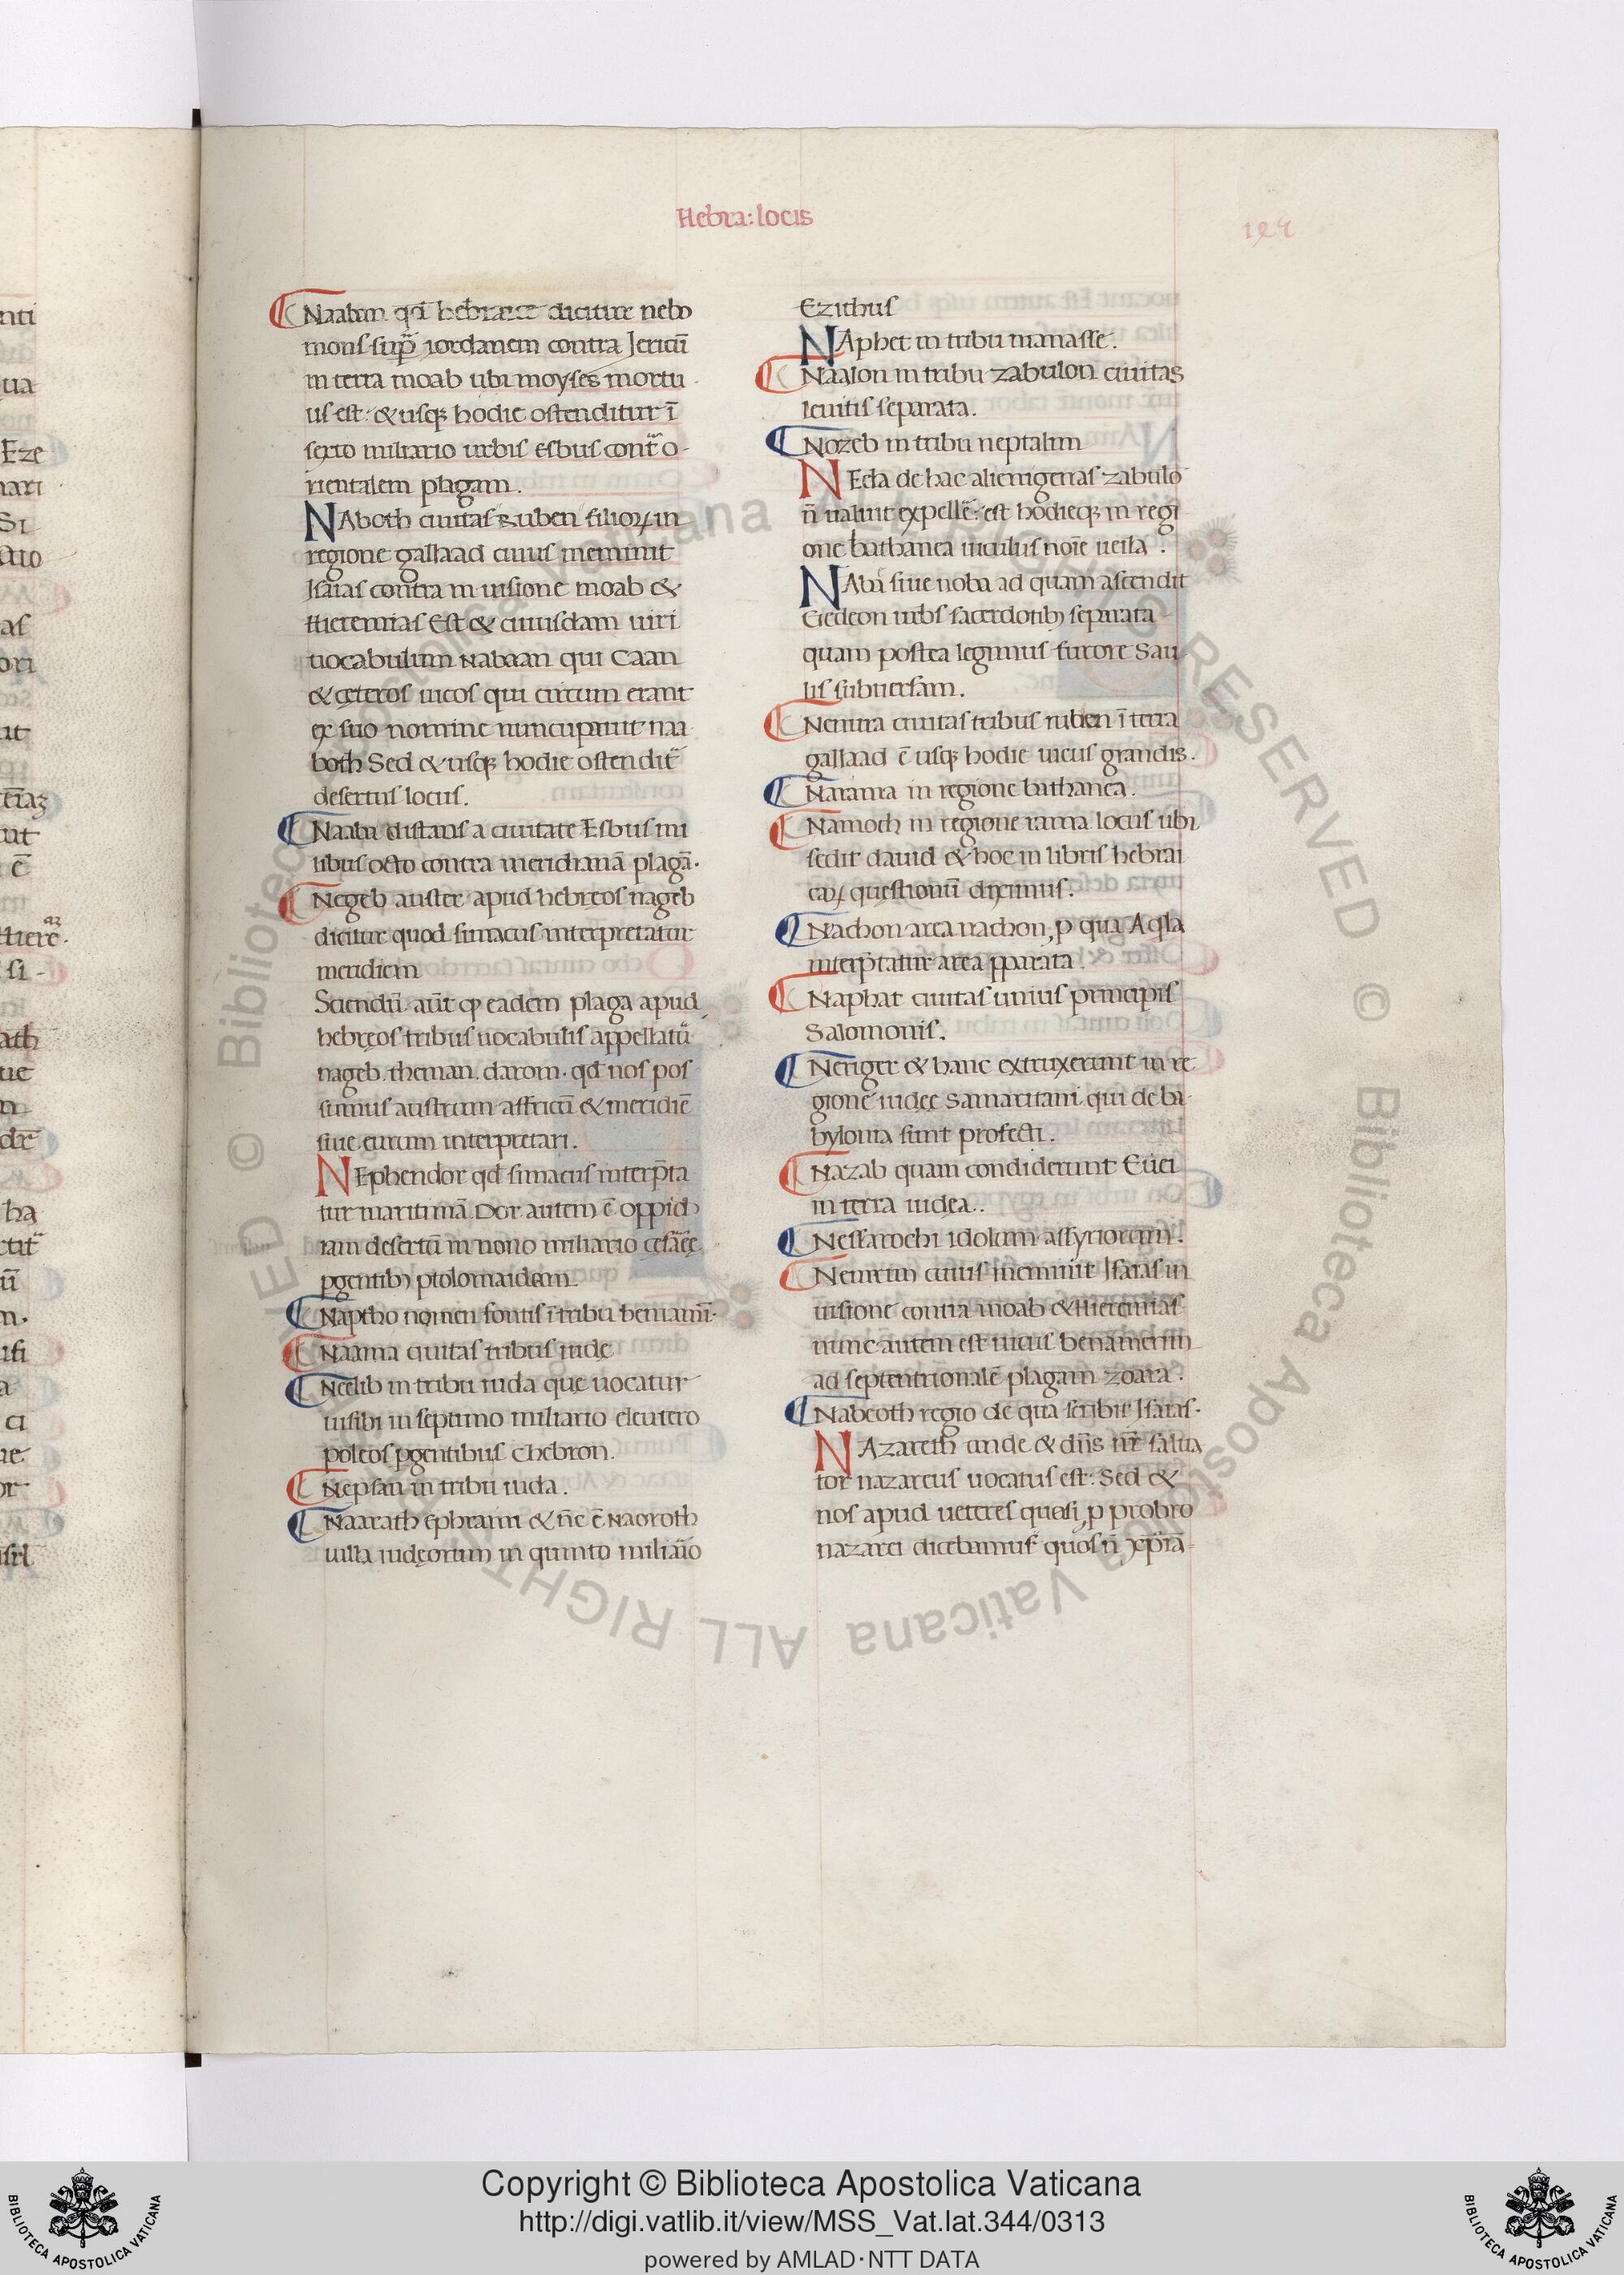 Hebra: locis
Naaban qđ hebraice dicitur nebo
mons sup̄ iordanem contra Jericū
in terra moab ubi moyses mortu
us est: & usq; hodie ostenditur ī
sexto miliario urbis esbus contra o-
rientalem plagam.
NAboth ciuitas Ruben filioꝝ in
regione gallaad cuius meminit
Isaias contra in uisione moab &
Hieremias Est & cuiusdam uiri
uocabulum Nabaan qui Caan
& ceteros uicos qui circum erant
ex suo nomine nuncupauit naa
both Sed & usq; hodie ostendit̄
desertus locus.
Naaba distans a ciuitate Esbus mi
libus octo contra meridianā plagā.
Negeb auster apud hebreos nageb
dicitur quod simacus interpretatur
meridiem
Sciendū aūt ꝙ eadem plaga apud
hebreos tribus uocabulis appellatū
nageb. theman. darom. qđ nos pos
sumus austrum affricū & meridiē
siue eurum interpretari.
NEphendor qđ simacus interp̄ta
tur maritimā Dor autem ē oppid
iam desertū in nono miliario cesaree
pgentib; ptolomaidam
Naptho nomen fontis ī tribu beniamī.
Naama ciuitas tribus iude
Neelib in tribu iuda que uocatur
iusibi in septimo miliario eleutero
poleos pgentibus Chebron.
Nepsan in tribu iuda.
Naarath Ephraim & n̄c ē Naoroth
uilla iudeorum in quinto miliaio
Ezithus
NAphet in tribu manasse.
Naalon in tribu zabulon ciuitas
leuitis separata.
Nozeb in tribu neptalim
NEela de hac alienigenas zabulo
n̄ ualuit expellē: est hodieq; in regi
one bathanea uiculus noīe ueila.
NAba siue noba ad quam ascendit
Gedeon urbs sacerdotib; separata
quam postea legimus furore Sau
lis subuersam.
Nemra ciuitas tribus ruben ī terra
gallaad ē usq; hodie uicus grandis.
Narama in regione bathanea.
Namoth in regione rama locus ubi
sedit dauid & hoc in libris hebrai
caꝝ questionū diximus.
Nachon area nachon, p qua Aqla
interp̄tatur area pparata
Naphat ciuitas unius principis
Salomonis.
Neriger & hanc extruxerunt in re
gione iudee Samaritani qui de ba
bylonia sunt profecti.
Nazab quam condiderunt Euei
in terra iudea..
Neffarochi idolum assyriorum.
Nemrim cuius meminit Isaias in
uisione contra moab & Hieremias
nunc autem est uicus benamerim
ad septentrionalē plagam zoara.
Nabeoth regio de qua scribit Isaias.
NAzareth unde & dn̄s nr̄ salua
tor nazareus uocatus est. Sed &
nos apud ueteres quasi, p probro
nazarei dicebamur quos n̄ xp̄ia-
Copyright © Biblioteca Apostolica Vaticana
http://digi.vatlib.it/view/MSS_Vat.lat.344/0313
powered by AMLAD·NTT DATA
BIBLIOTECA APOSTOLICA VATICANA
BIBLIOTECA APOSTOLICA VATICANA